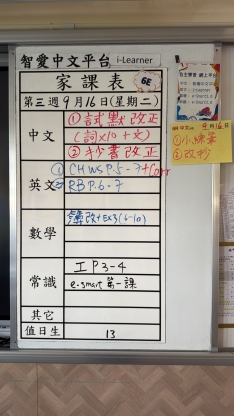 智愛中文平台 i-Learner
家課表 6E
第三週9月16日(星期二)
中文
①試默改正
(詞x10+文)
②抄書改正
英文
①CHWSP.5-7+Corr
②RBP.6-7
數學
改+EX3(6-10)
常識
工P3-4
e-smart第一課
其它
值日生 13
自主學習 網上平台
9月16日
①小練筆
②改抄